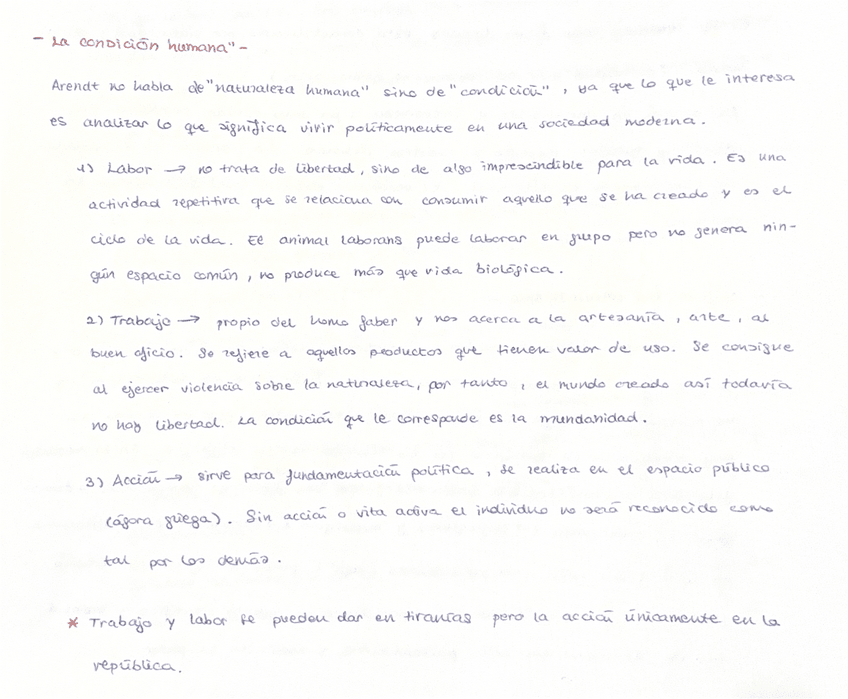 - La condición humana" -
Arendt no habla de "naturaleza humana" sino de "condición", ya que lo que le interesa
es analizar lo que significa vivir políticamente en una sociedad moderna.
1) Labor → no trata de libertad, sino de algo imprescindible para la vida. Es una
actividad repetitiva que se relaciona con consumir aquello que se ha creado y es el
ciclo de la vida. El animal laborans puede laborar en grupo pero no genera nin-
gún espacio común, no produce más que vida biológica.
2) Trabajo → propio del homo faber y nos acerca a la artesanía, arte, al
buen oficio. Se refiere a aquellos productos que tienen valor de uso. Se consigue
al ejercer violencia sobre la naturaleza, por tanto, el mundo creado así todavía
no hay libertad. La condición que le corresponde es la mundanidad.
3) Acción → sirve para fundamentación política, se realiza en el espacio público
(ágora griega). Sin acción o vita activa el individuo no será reconocido como
tal por los demás.
* Trabajo y labor se pueden dar en tiranías pero la acción únicamente en la
república.